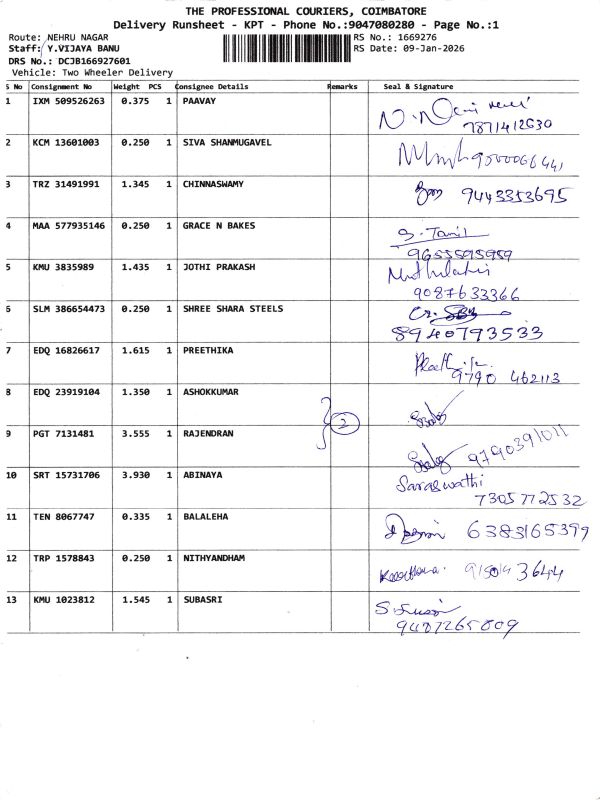 THE PROFESSIONAL COURIERS, COIMBATORE
Delivery Runsheet - KPT - Phone No.:9047080280 - Page No.:1
Route: NEHRU NAGAR
RS No.: 1669276
Staff: Y.VIJAYA BANU
RS Date: 09-Jan-2026
DRS No.: DCJB166927601
Vehicle: Two Wheeler Delivery
S No Consignment No Weight PCS Consignee Details Remarks Seal & Signature
1 IXM 509526263 0.375 1 PAAVAY
7871412630
2 KCM 13601003 0.250 1 SIVA SHANMUGAVEL
3 TRZ 31491991 1.345 1 CHINNASWAMY 9443353695
4 MAA 577935146 0.250 1 GRACE N BAKES S. Tamil
9655595959
5 KMU 3835989 1.435 1 JOTHI PRAKASH
9087633366
6 SLM 386654473 0.250 1 SHREE SHARA STEELS
8940793533
7 EDQ 16826617 1.615 1 PREETHIKA
9790 462113
8 EDQ 23919104 1.350 1 ASHOKKUMAR
2
9 PGT 7131481 3.555 1 RAJENDRAN 9790391011
10 SRT 15731706 3.930 1 ABINAYA Saraswathi
7305772532
11 TEN 8067747 0.335 1 BALALEHA 6383165399
12 TRP 1578843 0.250 1 NITHYANDHAM
13 KMU 1023812 1.545 1 SUBASRI
9487265809